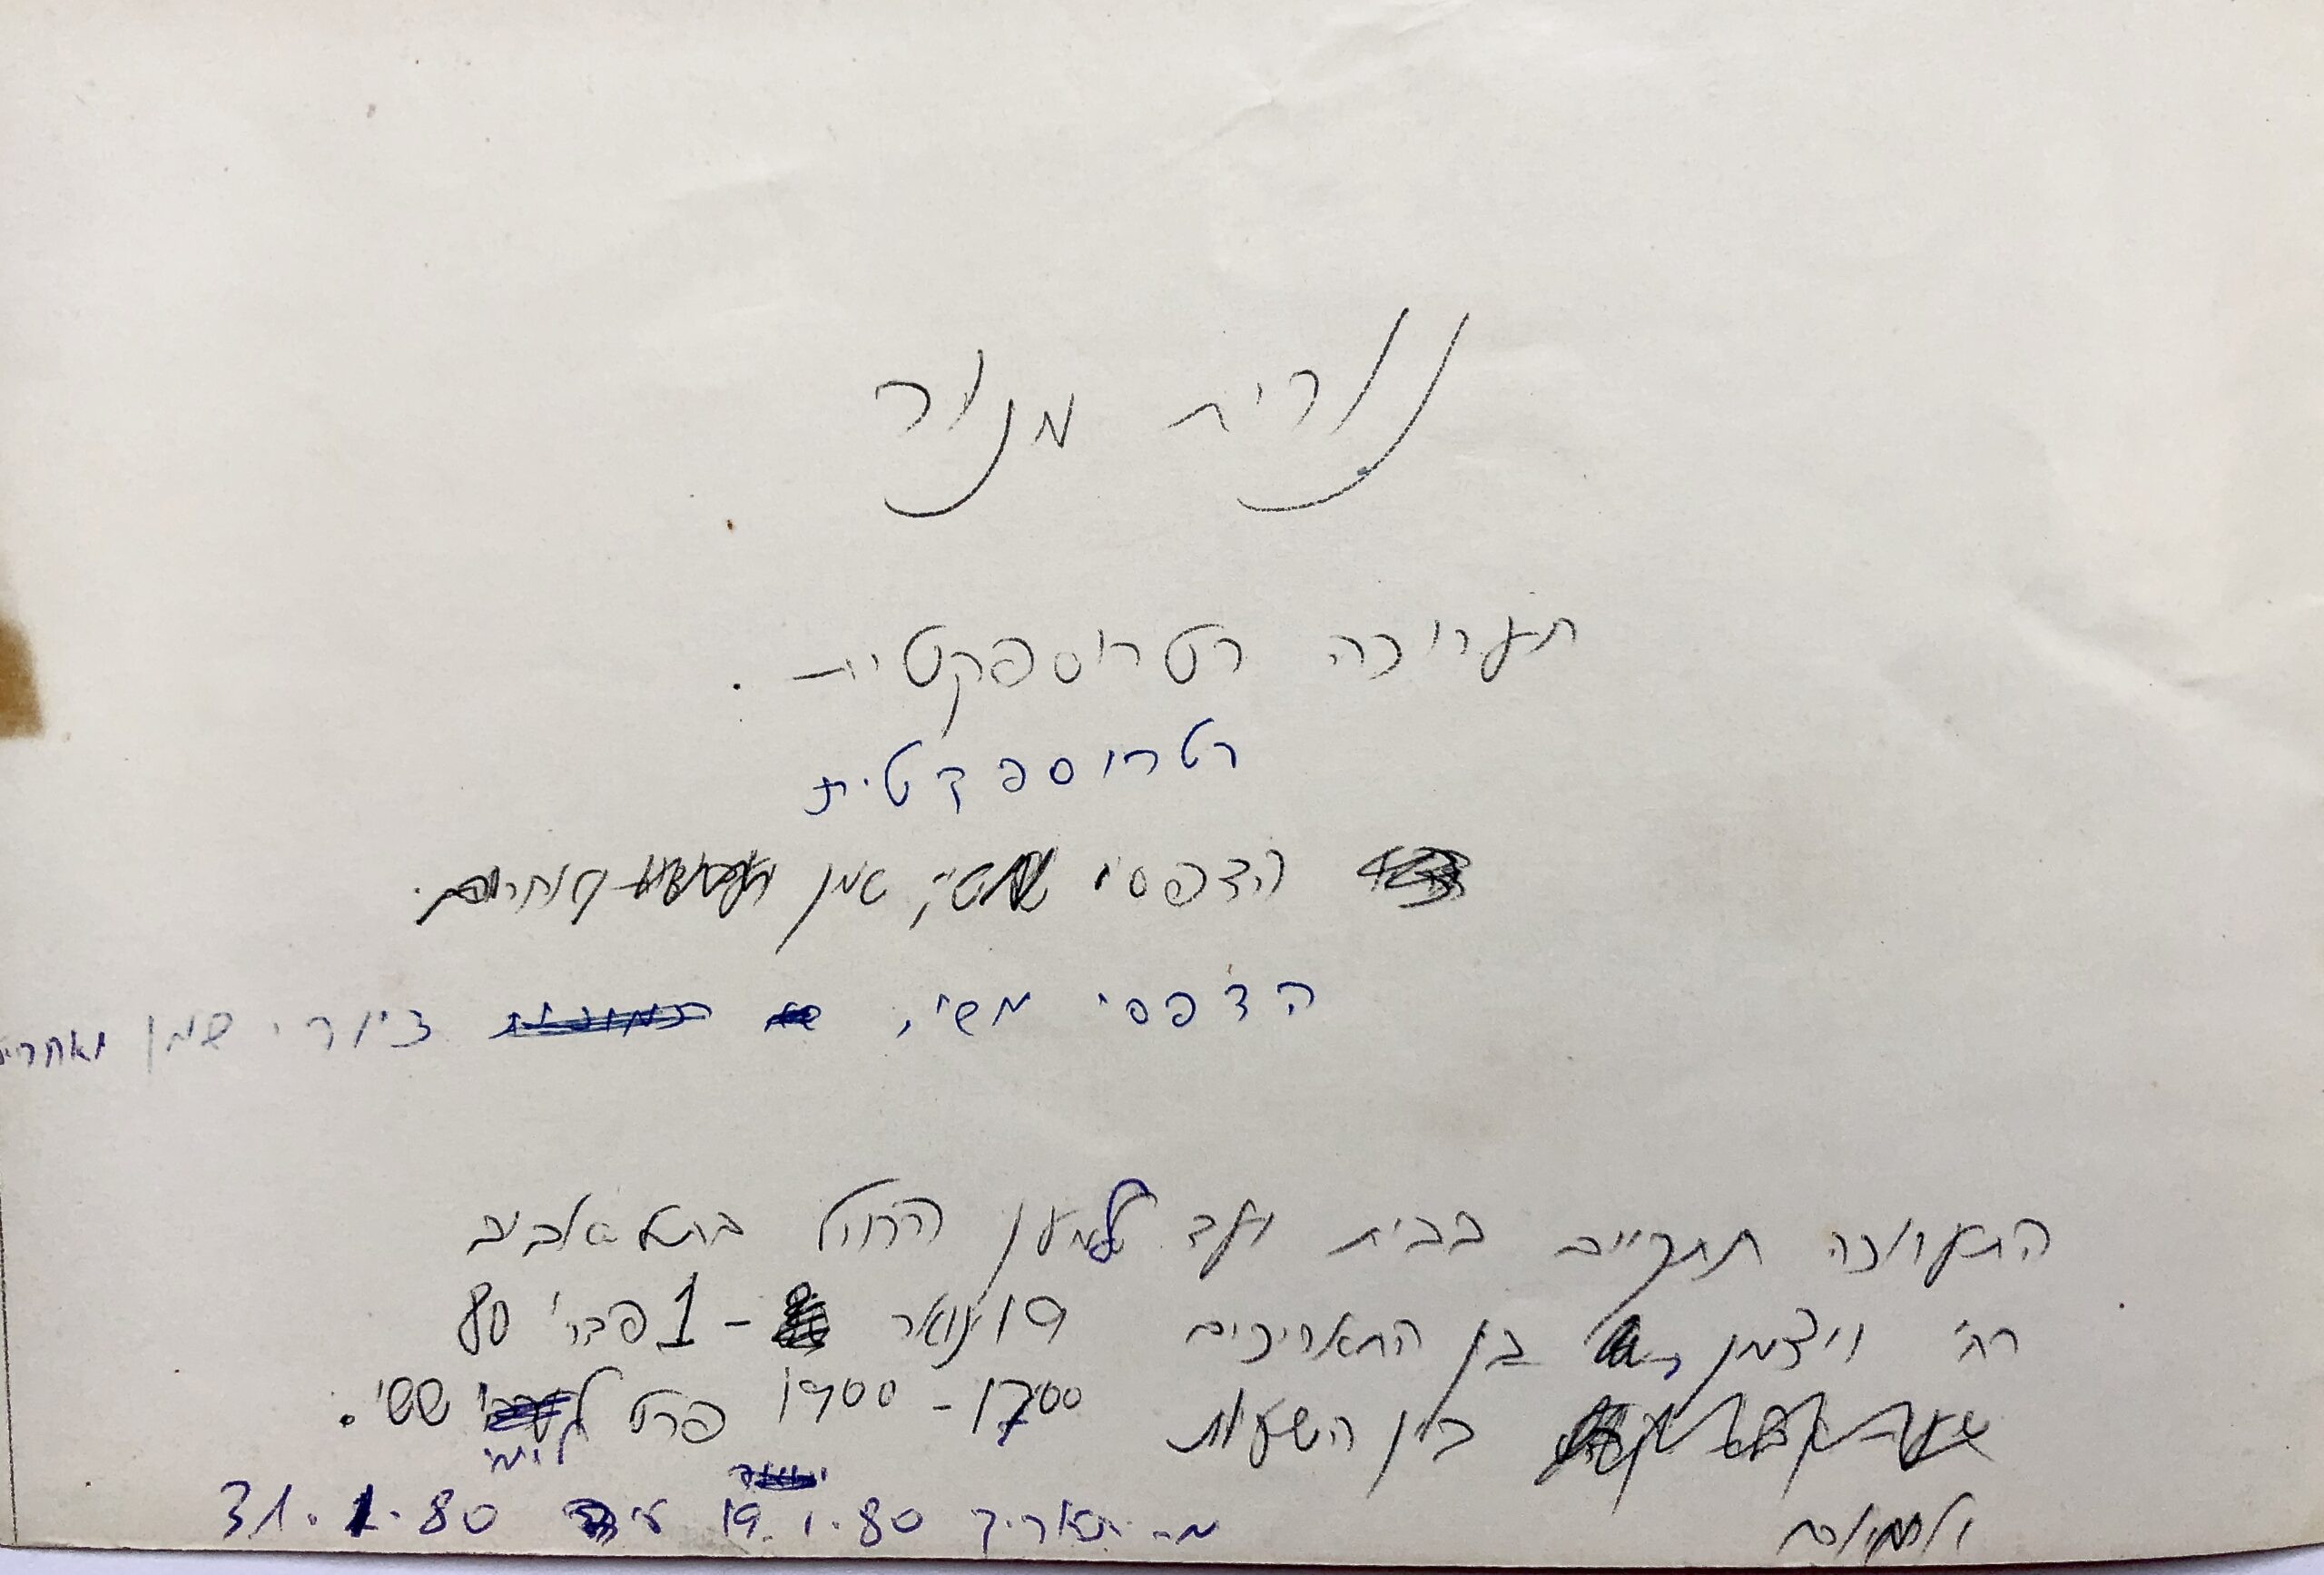 נורית מנור
תערוכה רטרוספקטיבית.
רטרוספקטית
הדפסי משי, שמן
הדפסי משי, ציורי שמן ואחרים
התערוכה תתקיים בבית ועד למען החייל בתל אביב
רח' ויצמן בין התאריכים 19 ינואר - 1 פבר' 80
בין השעות 17⁰⁰ - 19⁰⁰ פרט לימי שישי.
מ- תאריך 19.1.80 עד 31.1.80